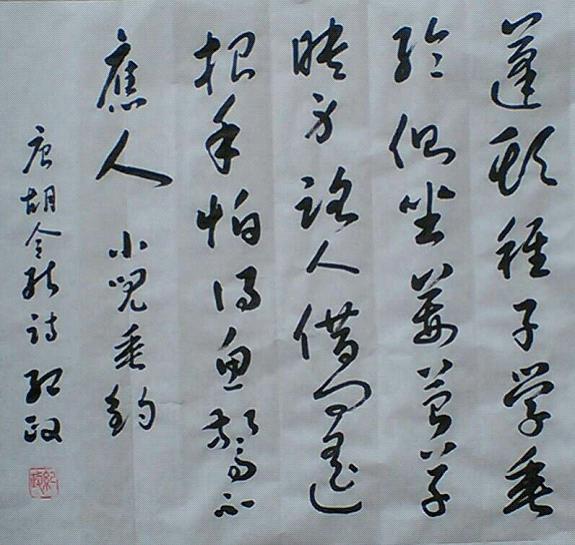 蓬头稚子学垂
纶侧坐莓苔草
映身路人借问遥
招手怕得鱼惊不
應人 小兒垂钓
唐胡令能诗 纪政